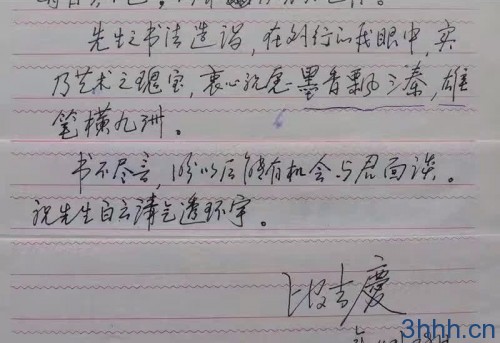 先生之书法造诣，在外行的我眼中，实
乃艺术之瑰宝，衷心祝愿墨香飘三秦，雄
笔横九洲。
书不尽言，盼以后能有机会与君面谈。
祝先生白云清气透环宇。
段吉庆
3hhh.cn